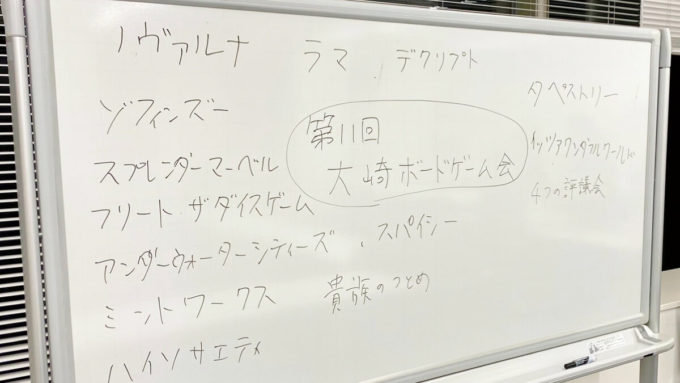 ノヴァルナ ラマ デクリプト
タペストリー
ゾフィンズー
第11回
大崎ボードゲーム会
イッツアワンダフルワールド
スプレンダーマーベル
4つの評議会
フリート ザダイスゲーム
アンダーウォーターシティーズ、スパイシー
ミントワークス 貴族のつとめ
ハイソサエティ